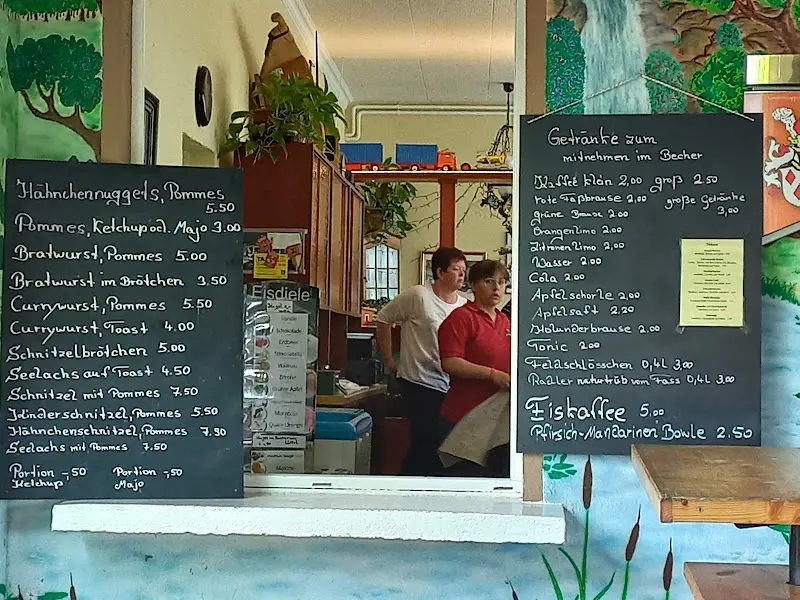 Hähnchennuggets, Pommes
5.50
Pommes, Ketchup od. Majo 3.00
Bratwurst, Pommes 5.00
Bratwurst im Brötchen 3.50
Currywurst, Pommes 5.50
Currywurst, Toast 4.00
Schnitzelbrötchen 5.00
Seelachs auf Toast 4.50
Schnitzel mit Pommes 7.50
Kinderschnitzel, Pommes 5.50
Hähnchenschnitzel, Pommes 7.90
Seelachs mit Pommes 7.50
Portion -,50 Portion -,50
Ketchup Majo
Eisdiele
Vanille
Schokolade
Erdbeer
Walnuss
Grüner Apfel
Getränke zum
mitnehmen im Becher
Kaffee klein 2,00 groß 2.50
rote Faßbrause 2.00 große Getränke
3,00
grüne Brause 2.00
Orangenlimo 2.00
Zitronenlimo 2.00
Wasser 2.00
Cola 2.00
Apfelschorle 2,00
Apfelsaft 2.20
Holunderbrause 2.00
Tonic 2.00
Feldschlösschen 0,4l 3,00
Radler naturtrüb vom Fass 0,4l 3,00
Eiskaffee 5,00
Pfirsich-Mandarinen Bowle 2.50